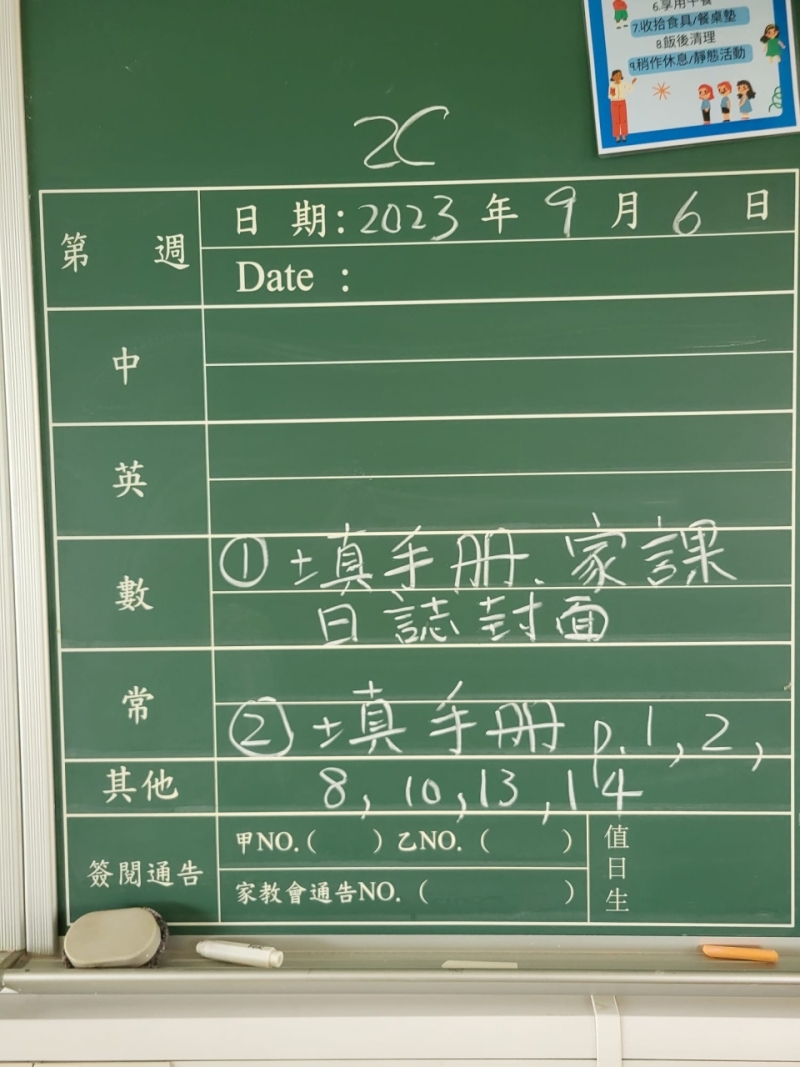 6.享用午餐
7.收拾食具/餐桌墊
8.飯後清理
9.稍作休息/靜態活動
2C
第 週
日 期：2023 年 9 月 6 日
Date :
中
英
數
① 填手册、家課
日誌封面
常
② 填手册 p.1, 2,
其他
8, 10, 13, 14
簽閱通告
甲NO.( ) 乙NO. ( )
家教會通告NO. ( )
值日生